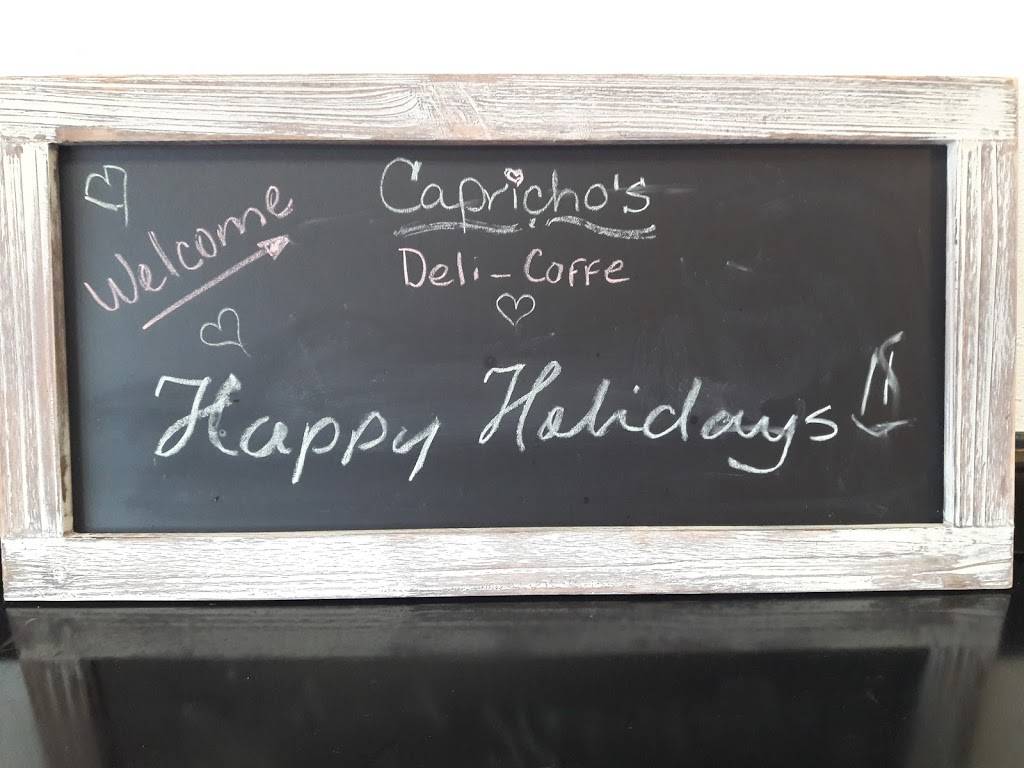 Welcome
Capricho's
Deli-Coffe
Happy Holidays